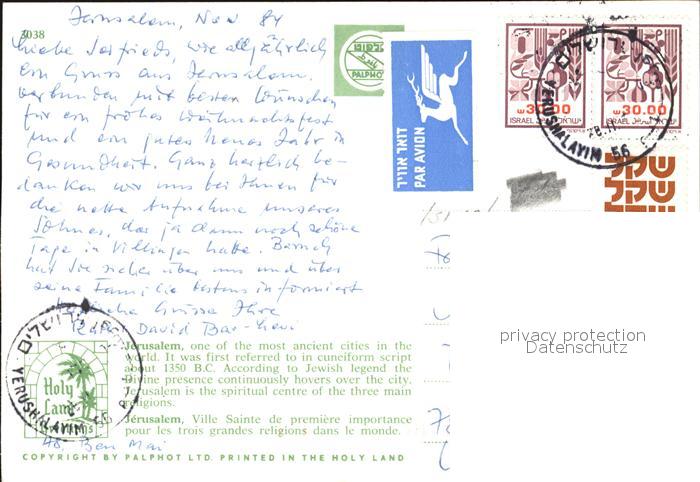 Jerusalem, Nov 84
3038
Liebe Josfrieds, wie alljährlich
ein Gruss aus Jerusalem.
verbunden mit besten Wünschen
für ein frohes Weihnachtsfest
und ein gutes Neues Jahr in
Gesundheit. Ganz herzlich be-
danken wir uns bei Ihnen für
die nette Aufnahme unseres
Sohnes, der ja dann noch schöne
Tage in Villingen hatte. Baruch
hat Sie sicher über uns und über
seine Familie bestens informiert
Herzliche Grüsse Ihre
David Bar-Levi
Ben Mai
פלפוט
PALPHOT
דואר אוויר
PAR AVION
30.00
ISRAEL ישראל
30.00
ISRAEL ישראל
ירושלים
YERUSHALAYIM 56
שקל
שקל
שקל
Israel
privacy protection
Datenschutz
ירושלים
YERUSHALAYIM 56
Holy
Land
Jerusalem, one of the most ancient cities in the
world. It was first referred to in cuneiform script
about 1350 B.C. According to Jewish legend the
Divine presence continuously hovers over the city.
Jerusalem is the spiritual centre of the three main
religions.
Jérusalem, Ville Sainte de première importance
pour les trois grandes religions dans le monde.
COPYRIGHT BY PALPHOT LTD. PRINTED IN THE HOLY LAND